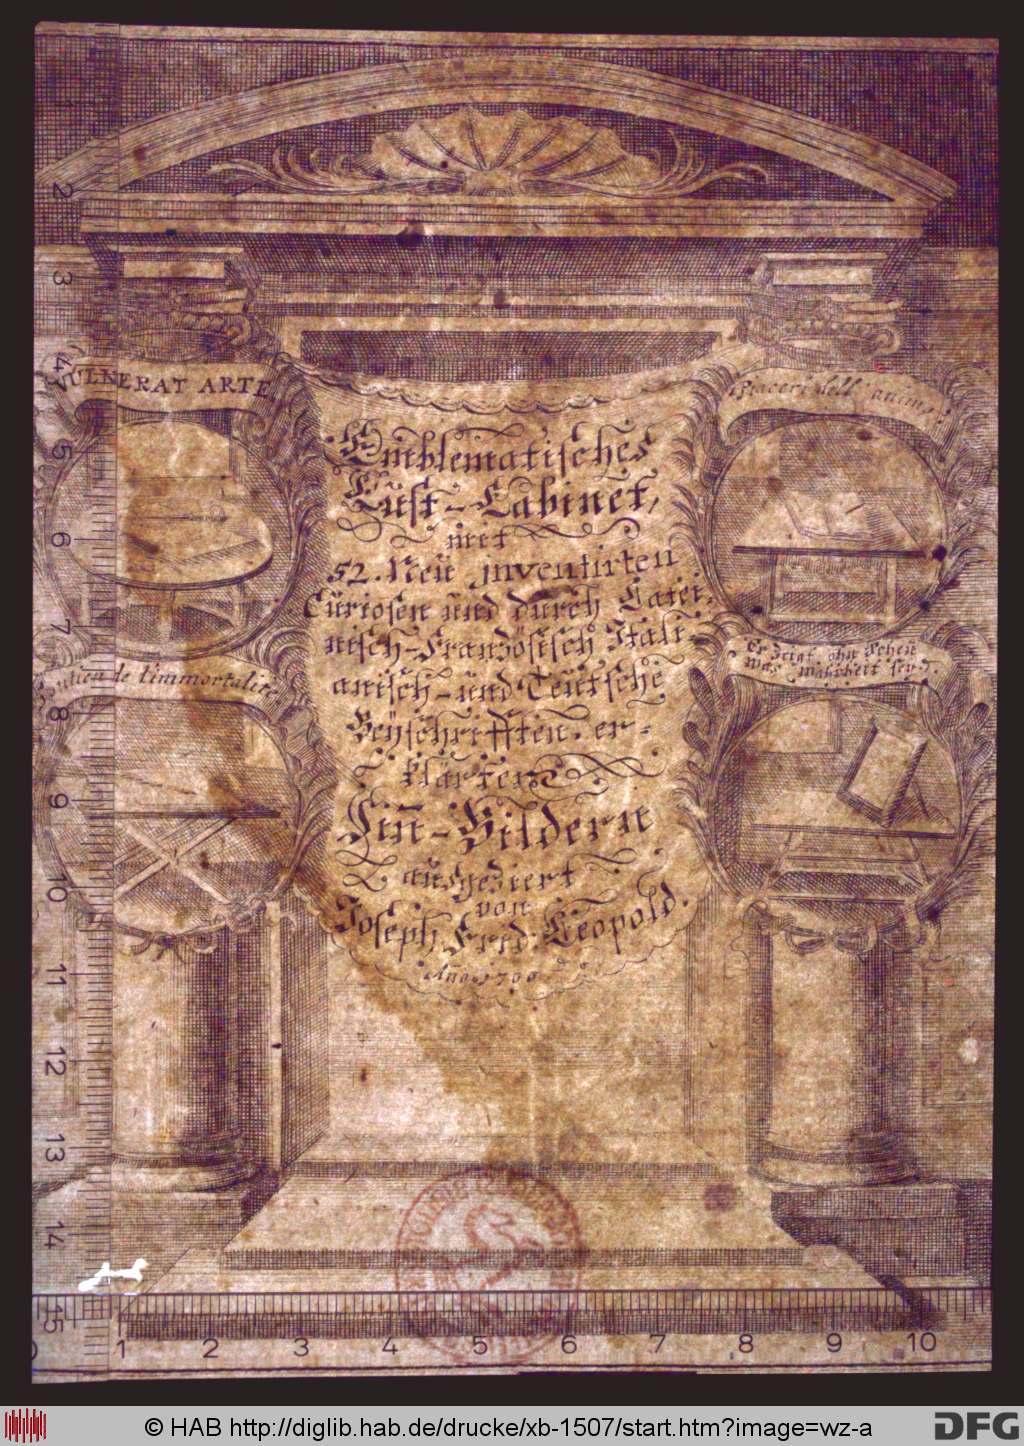 VULNERAT ARTE.
Piaceri dell' animo.
Emblematisches
Lust-Cabinet,
mit
52. Neü jnventirten
Cüriosen ünd dürch Latei,
nisch-Französisch Itali-
änisch-ünd Teütsche
Beÿschrifften, er-
klärten
Sin-Bildern
aüsgeziert
von
Joseph. Frid: Leopold.
Ano 1700
de l'immortalite
Er zeigt ohn scheü
was wahrheit seÿ
2
3
4
5
6
7
8
9
10
11
12
13
14
15
1 2 3 4 5 6 7 8 9 10
© HAB http://diglib.hab.de/drucke/xb-1507/start.htm?image=wz-a
DFG